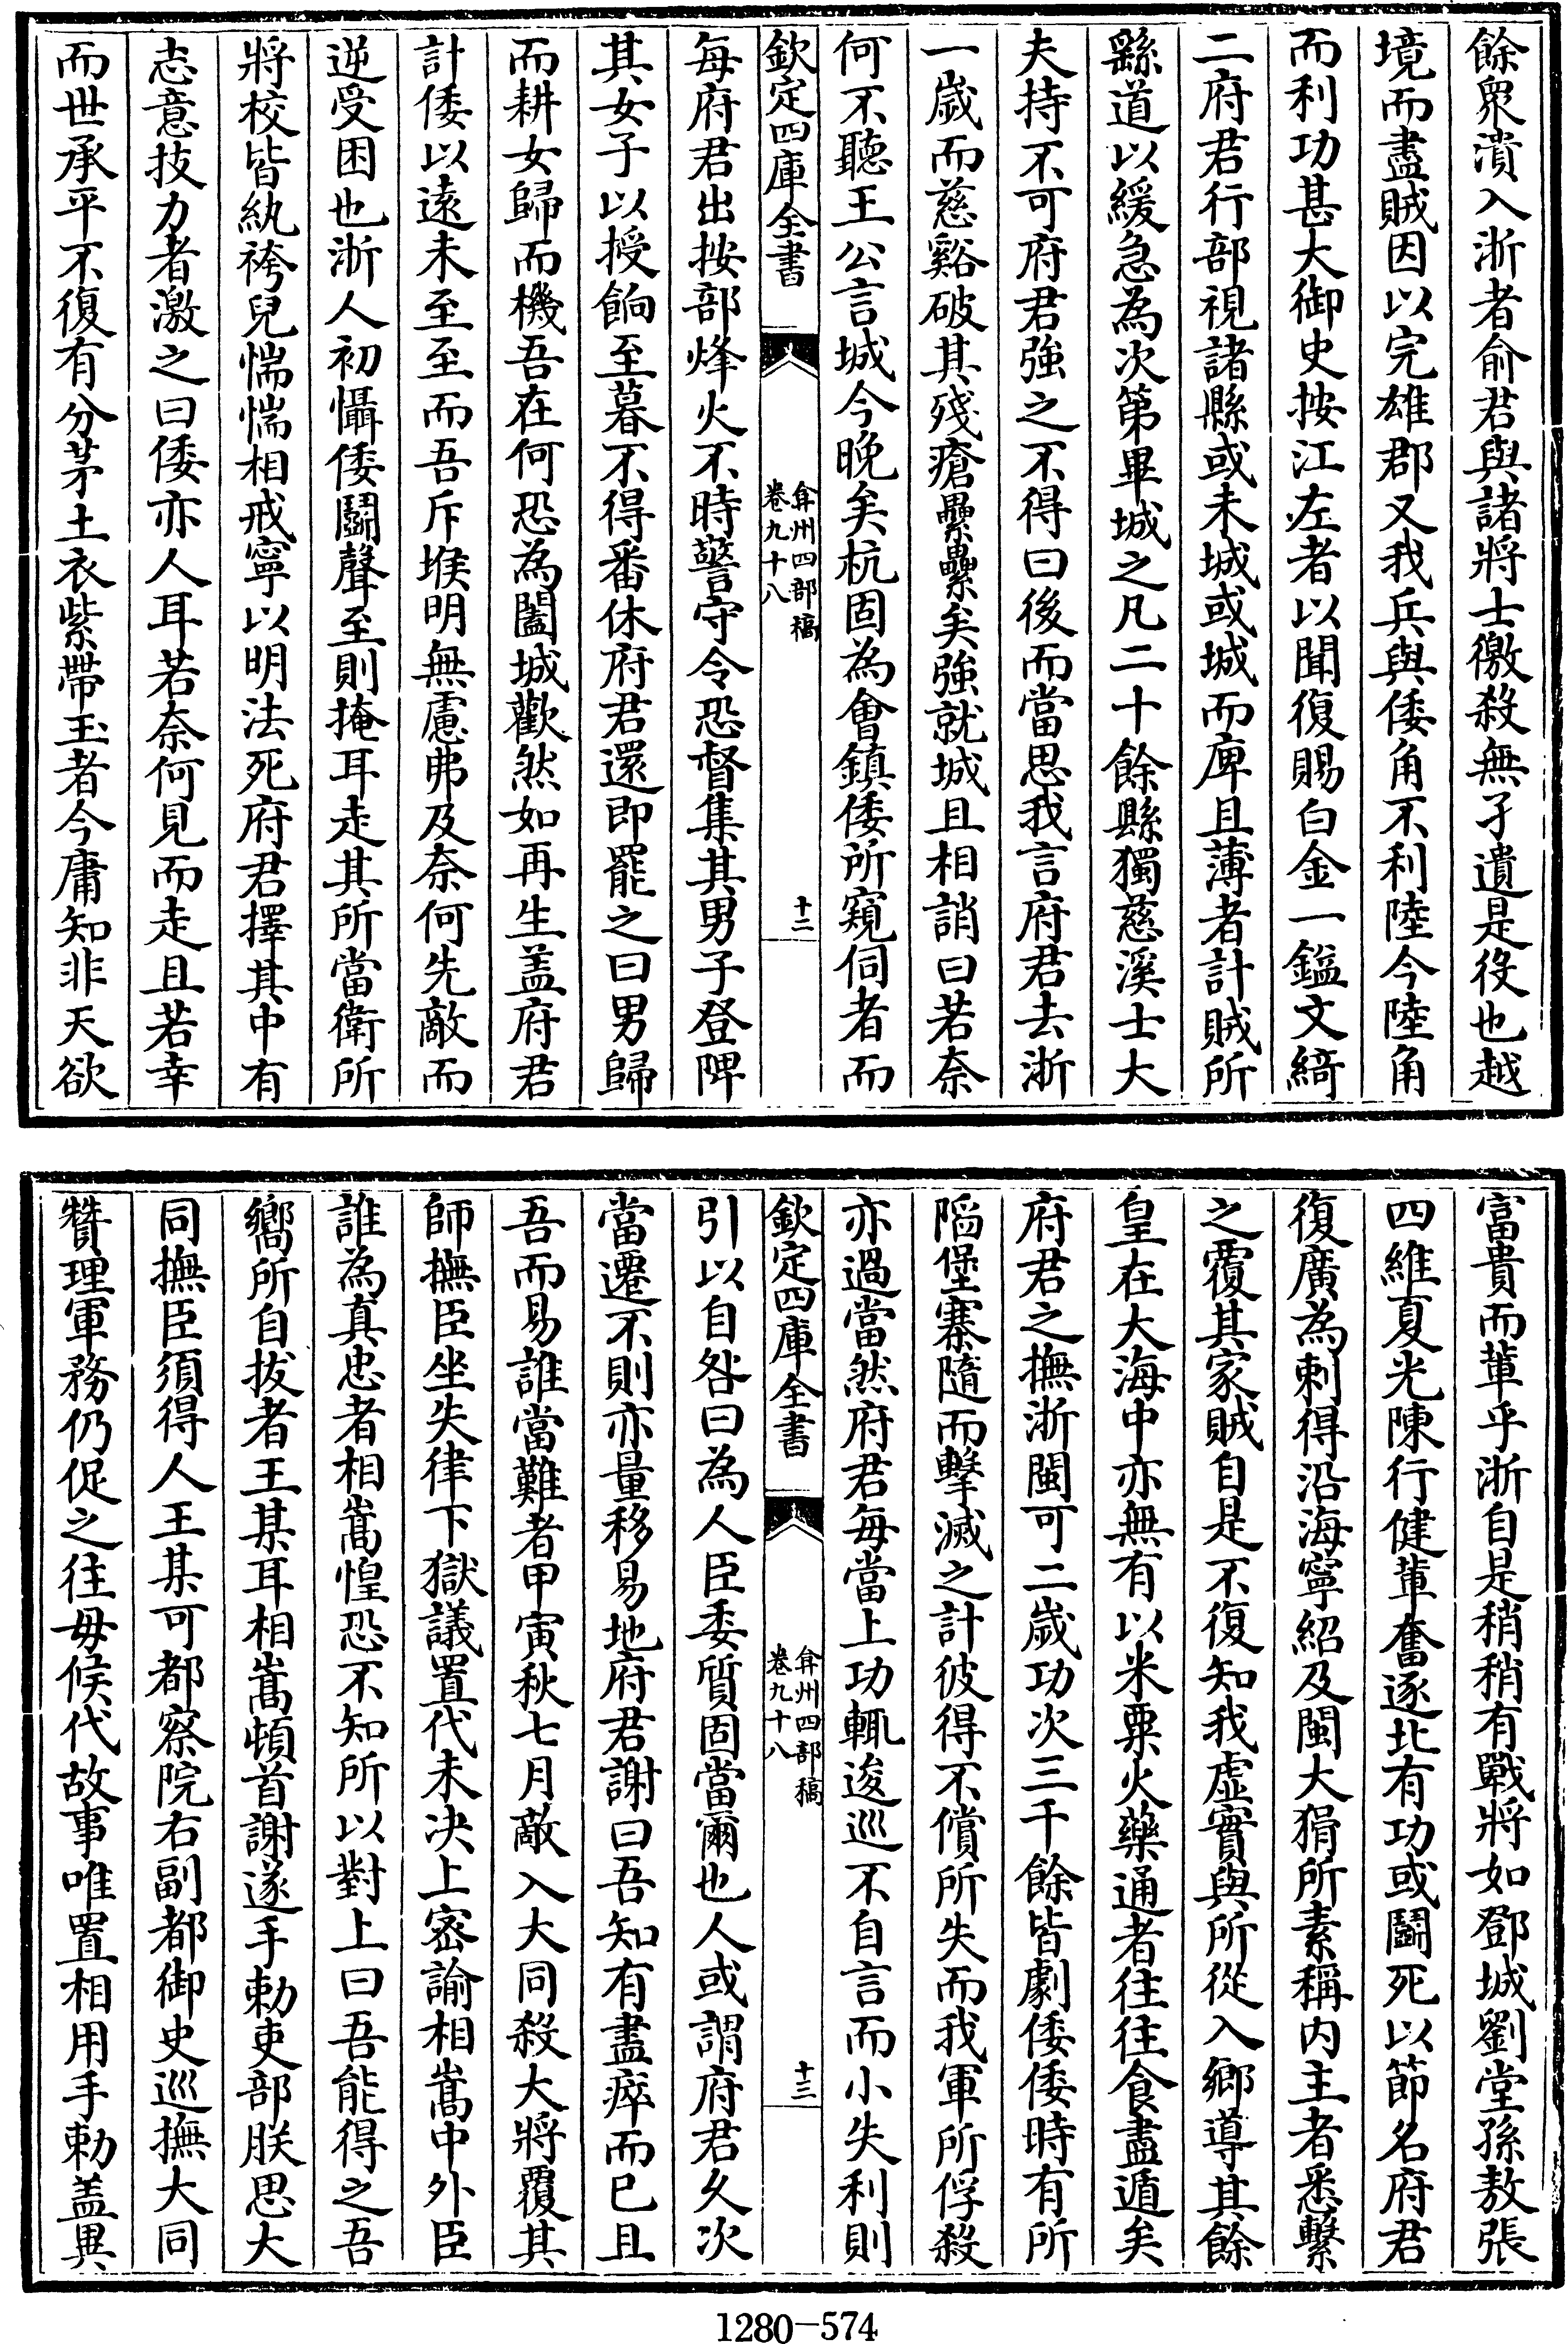 餘衆潰入浙者俞君與諸將士徼殺無孑遺是役也越
境而盡賊因以完雄郡又我兵與倭角不利陸今陸角
而利功甚大御史按江左者以聞復賜白金一鎰文綺
二府君行部視諸縣或未城或城而庳且薄者計賊所
繇道以緩急為次第畢城之凡二十餘縣獨慈溪士大
夫持不可府君強之不得曰後而當思我言府君去浙
一歲而慈谿破其殘瘡纍纍矣強就城且相誚曰若奈
何不聽王公言城今晚矣杭固為會鎮倭所窺伺者而
欽定四庫全書
弇州四部稿
卷九十八
十二
每府君出按部烽火不時警守令恐督集其男子登陴
其女子以授餉至暮不得番休府君還即罷之曰男歸
而耕女歸而機吾在何恐為闔城歡然如再生盖府君
計倭以遠未至至而吾斥堠明無慮弗及奈何先敵而
逆受困也浙人初懾倭鬭聲至則掩耳走其所當衛所
將校皆紈袴兒惴惴相戒寧以明法死府君擇其中有
志意技力者激之曰倭亦人耳若奈何見而走且若幸
而世承平不復有分茅土衣紫帶玉者今庸知非天欲
富貴而軰乎浙自是稍稍有戰將如鄧城劉堂孫敖張
四維夏光陳行健軰奮逐北有功或鬭死以節名府君
復廣為剌得沿海寧紹及閩大猾所素稱内主者悉繫
之覆其家賊自是不復知我虚實與所從入鄉導其餘
皇在大海中亦無有以米粟火藥通者往往食盡遁矣
府君之撫浙閩可二歲功次三千餘皆劇倭倭時有所
陷堡寨隨而擊滅之計彼得不償所失而我軍所俘殺
亦過當然府君每當上功輒逡巡不自言而小失利則
欽定四庫全書
弇州四部稿
卷九十八
十三
引以自咎曰為人臣委質固當爾也人或謂府君久次
當遷不則亦量移易地府君謝曰吾知有盡瘁而已且
吾而易誰當難者甲寅秋七月敵入大同殺大將覆其
師撫臣坐失律下獄議置代未决上宻諭相嵩中外臣
誰為真忠者相嵩惶恐不知所以對上曰吾能得之吾
嚮所自拔者王某耳相嵩頓首謝遂手勅吏部朕思大
同撫臣須得人王某可都察院右副都御史巡撫大同
贊理軍務仍促之往毋候代故事唯置相用手勅盖異
1280-574